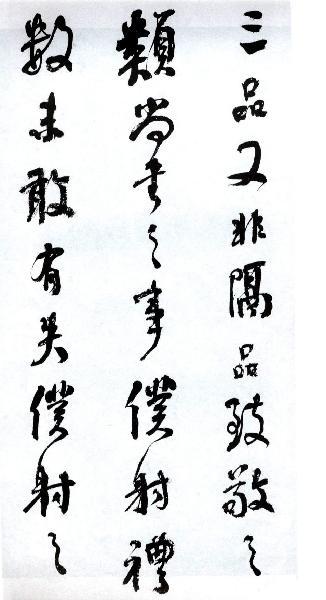 三品又非隔品致敬之
類尚書之事僕射禮
數未敢有失僕射之